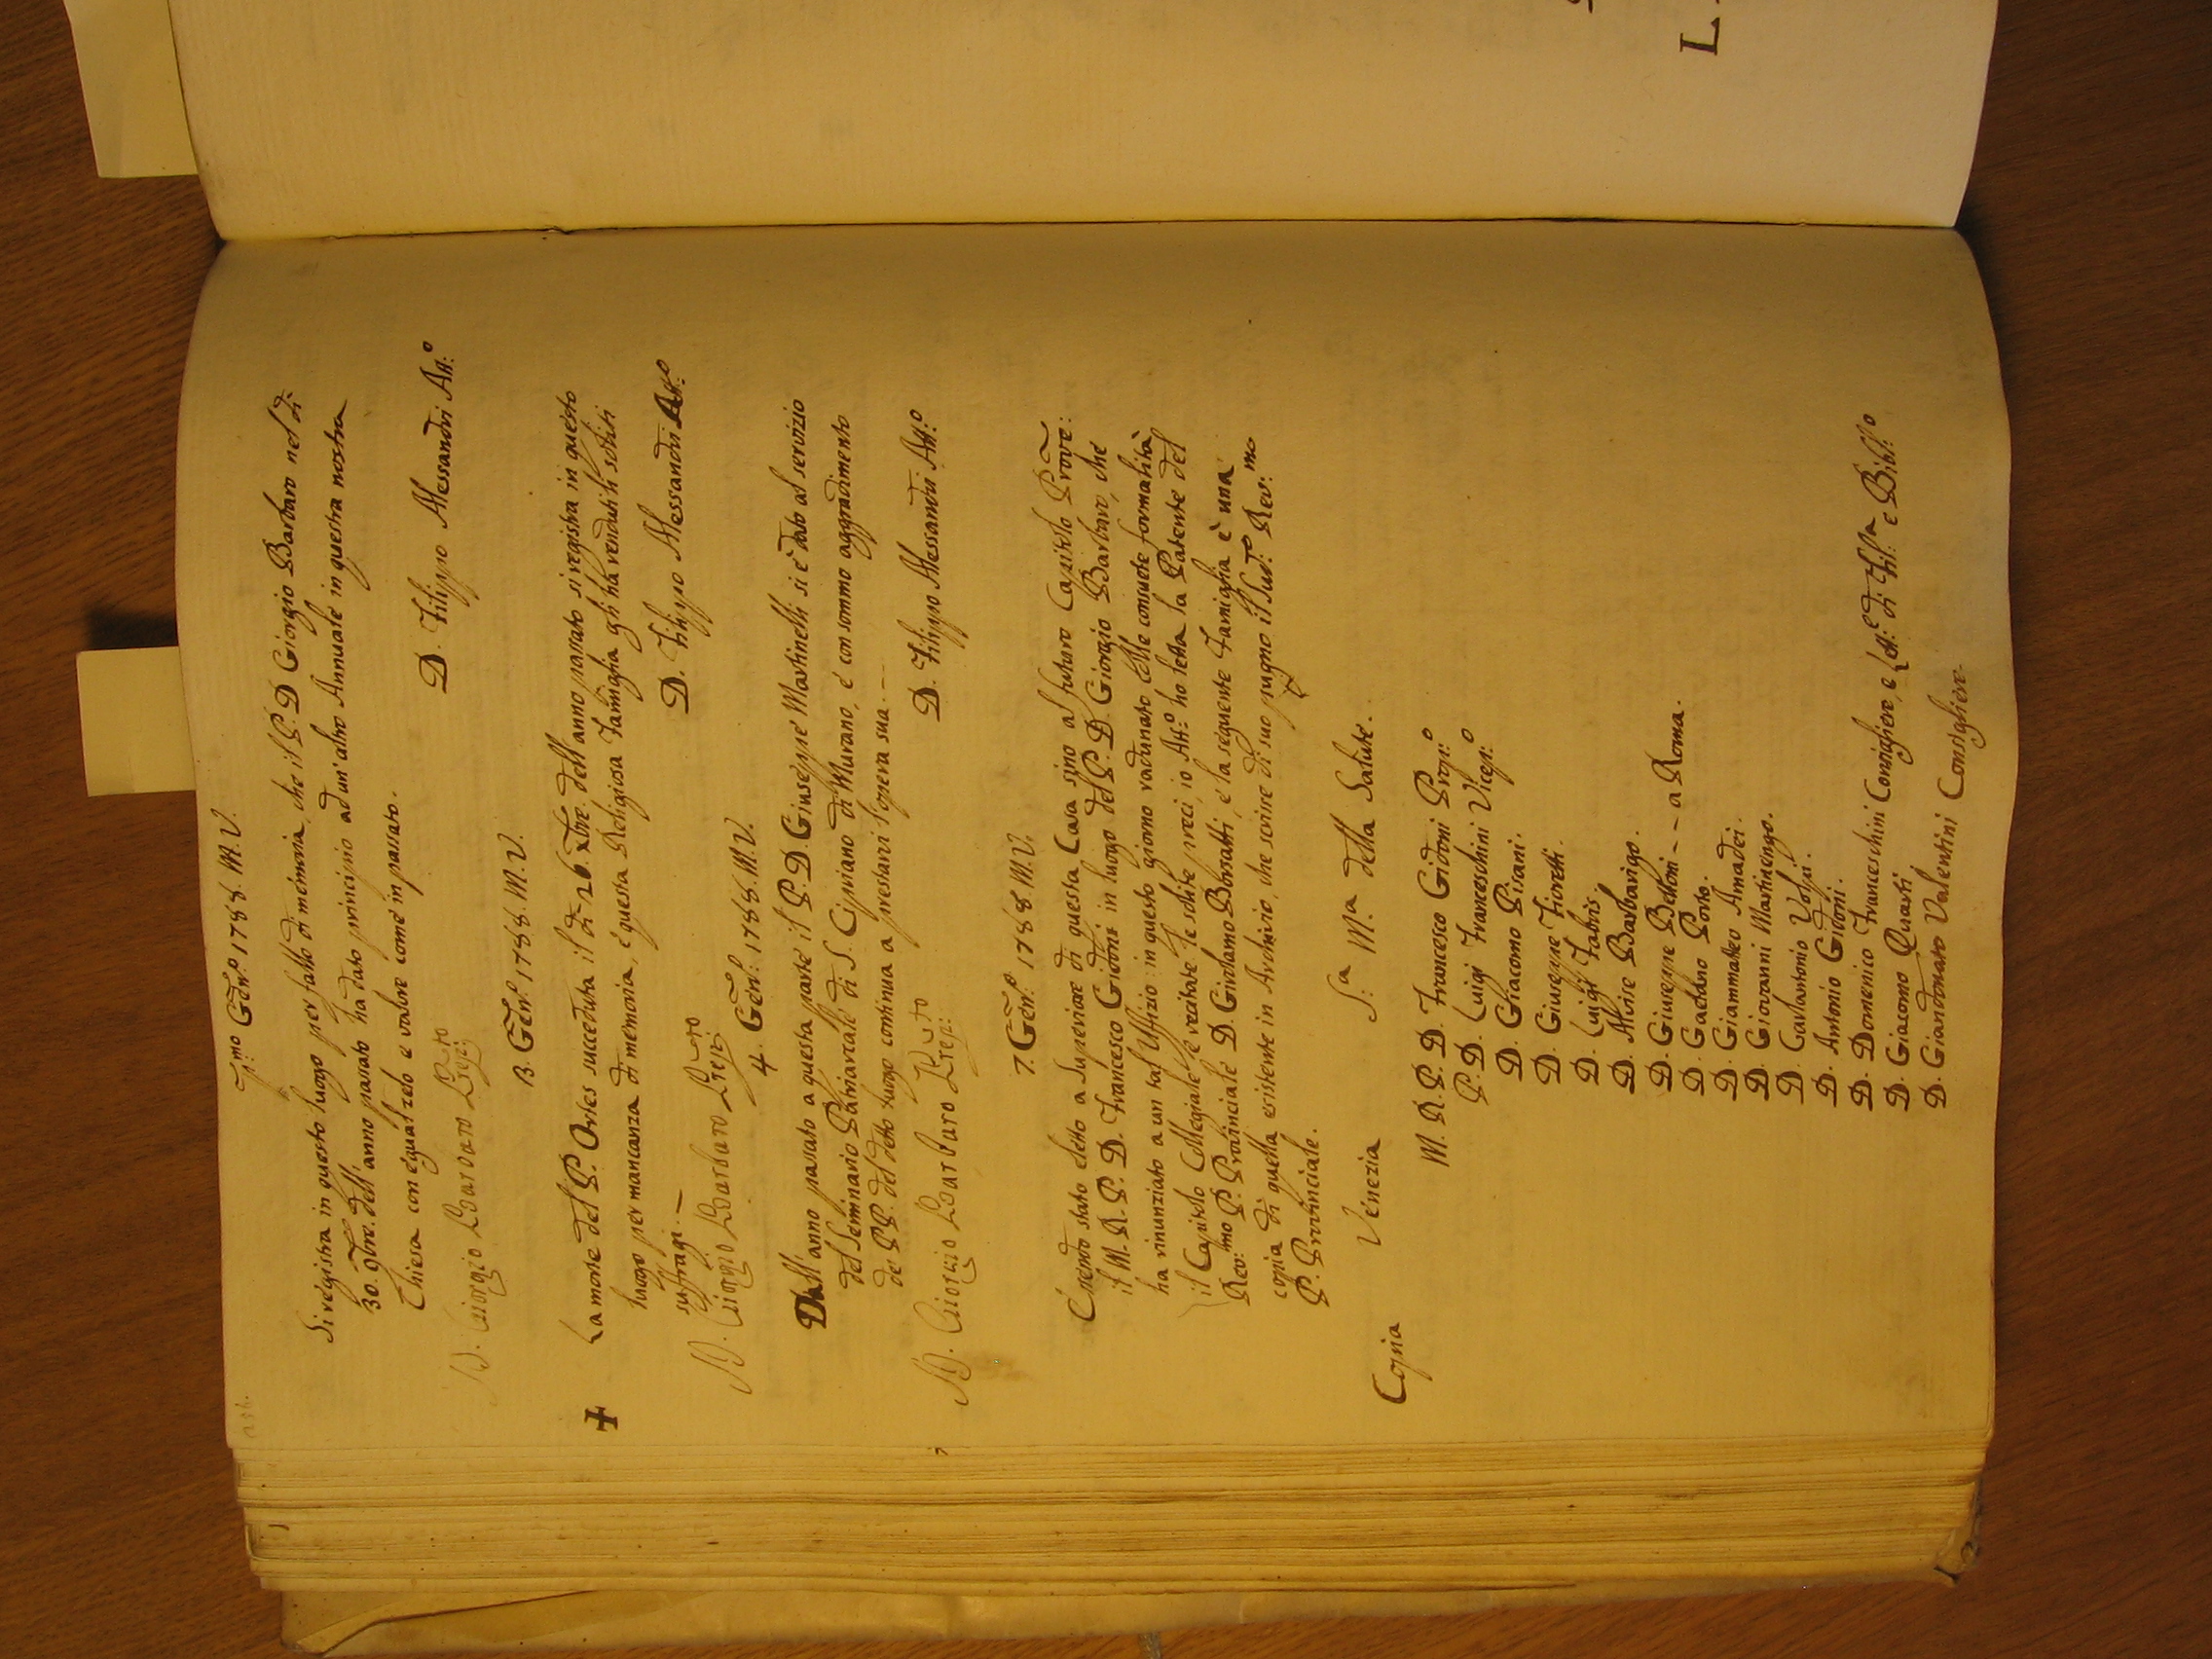 P:mo Gen:o 1788. M.V.
Si registra in questo luogo per fatto di memoria, che il P. D Giorgio Barbaro nel dì
30. 9bre. dell'anno passato ha dato principio ad un'altro Annuale in questa nostra
Chiesa con egual zelo e valore come in passato.
D. Filippo Alessandri Att:o
D. Giorgio Barbaro Prep:to
3. Gen:o 1788. M.V.
+ La morte del P. Orles succeduta il dì 26. Xbre. dell'anno passato si registra in questo
luogo per mancanza di memoria, e questa Religiosa Famiglia gli ha renduti li soliti
suffragi. —
D. Filippo Alessandri Att:o
D. Giorgio Barbaro Prep:to
4. Gen: 1788. M.V.
Dall'anno passato a questa parte il P. D. Giuseppe Martinelli si è dato al servizio
del Seminario Patriarcale di S. Cipriano di Murano, e con sommo aggradimento
dei PP. del detto luogo continua a prestarvi l'opera sua. —
D. Filippo Alessandri Att:o
D. Giorgio Barbaro Prep:to
7. Gen:o 1788. M.V.
Essendo stato eletto a Superiore di questa Casa sino al futuro Capitolo Prov̄e:
il M. R. P. D. Francesco Gidoni in luogo del P. D. Giorgio Barbaro, che
ha rinunziato a un tal Uffizio: in questo giorno radunato colle consuete formalità
il Capitolo Collegiale e recitate le solite preci, io Att:o ho letta la Patente del
Rev:mo P. Provinciale D. Girolamo Bonatti, e la seguente Famiglia è una
copia di quella esistente in Archivio, che scrive di suo pugno il Sud:to Rev:mo
P. Provinciale.
Copia Venezia S:a M:a della Salute.
M. R. P. D. Francesco Gidoni Prep:o
P. D. Luigi Franceschini Vicep:o
D. Giacomo Pisani.
D. Giuseppe Fioretti.
D. Luigi Fabris.
D. Alvise Barbarigo.
D. Giuseppe Bettoni – – a Roma.
D. Gaetano Porto.
D. Giammatteo Amadei.
D. Giovanni Martinengo.
D. Carlantonio Volpi.
D. Antonio Gidoni.
D. Domenico Franceschini Consigliere, e Lett:e di Fil:a e Bibl:o
D. Giacomo Quarti
D. Giandonato Valentini Consigliere.
L